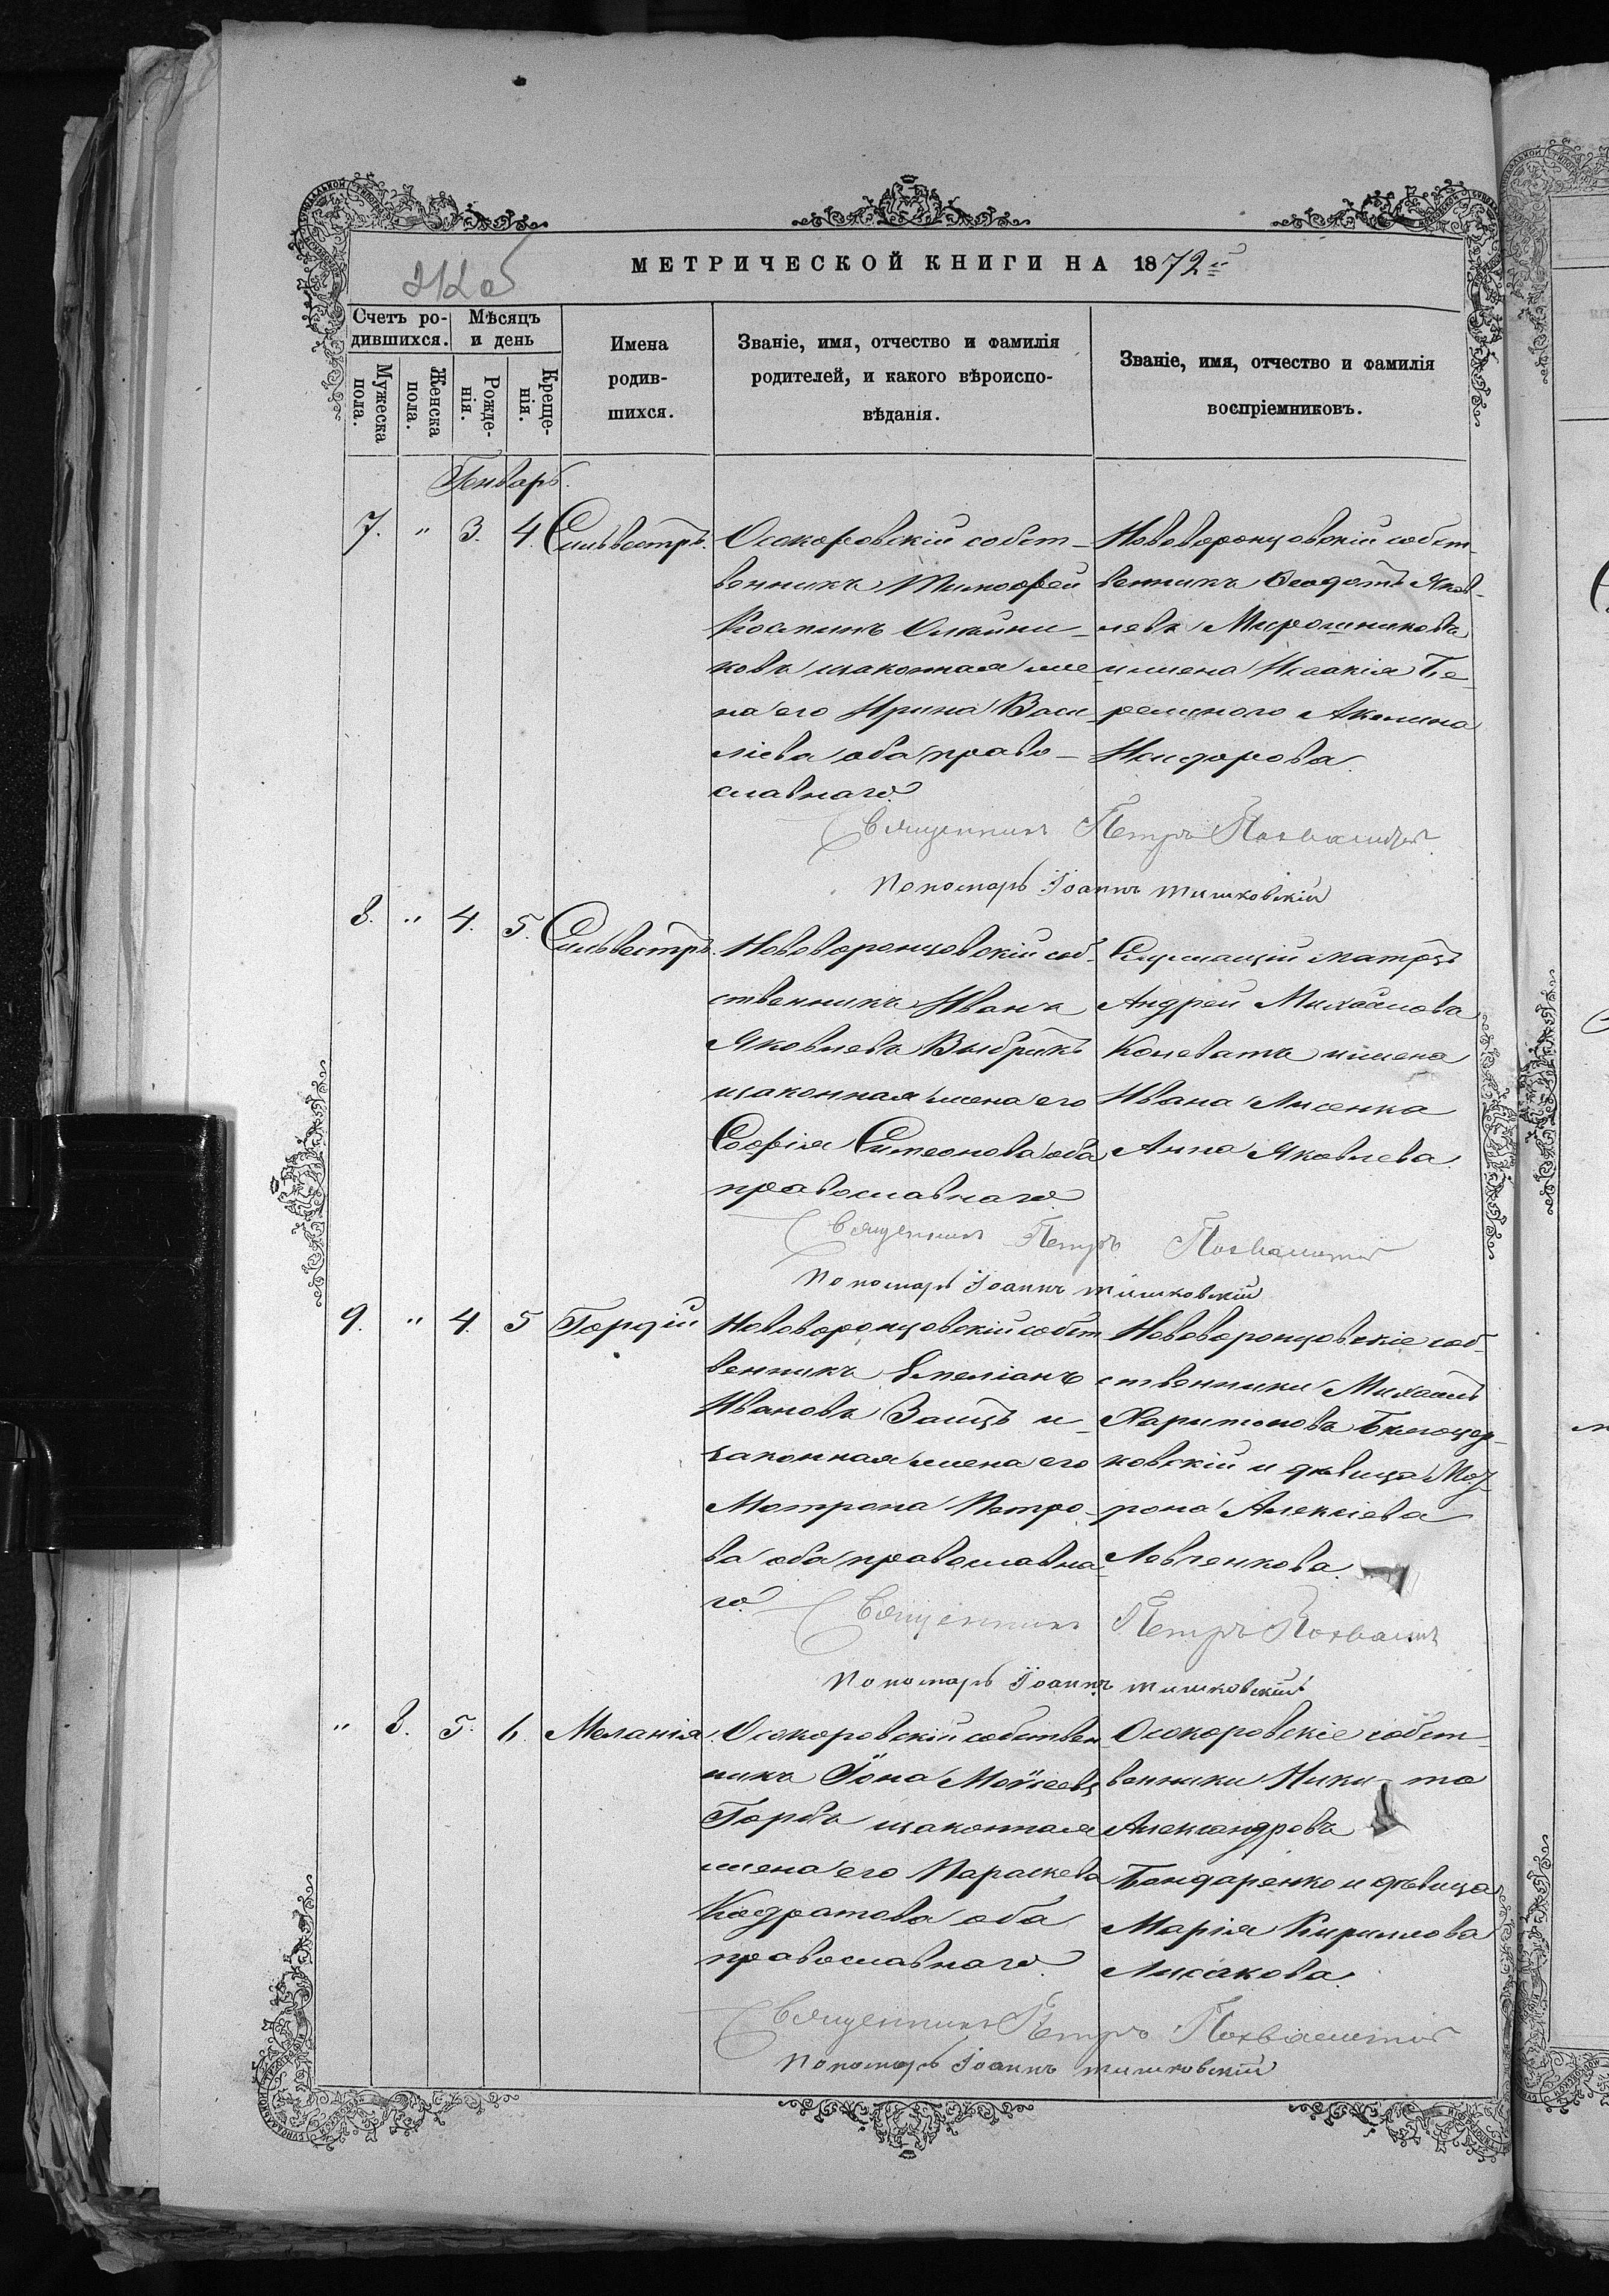 212 об
МЕТРИЧЕСКОЙ КНИГИ НА 1872й
Счетъ ро-
дившихся.
Мѣсяцъ
и день
Мужеска
пола.
Женска
пола.
Рожде-
нія.
Креще-
нія.
Имена
родив-
шихся.
Званіе, имя, отчество и фамилія
родителей, и какого вѣроиспо-
вѣданія.
Званіе, имя, отчество и фамилія
воспріемниковъ.
Генварь.
7. " 3. 4. Сильвестръ.
Осокоровскій собст-
венникъ Тимофей
Косминъ
ковъ и законная же
на его Ирина Васи-
ліева оба право-
славнаго.
Нововоронцовскій собст-
венникъ Ѳеодотъ Яков-
левъ Мирошниковъ
и жена Исаакія Бе-
режного Акилина
Исидорова.
Священникъ Петръ
Пономарь Іоаннъ Тишковскій
8. " 4. 5. Сильвестръ.
Нововоронцовскій соб-
ственникъ Иванъ
Яковлевъ Выбрикъ
и законная жена его
Софія Симеонова оба
православнаго
Служащій матрозъ
Андрей Михайловъ
Коневатъ и жена
Ивана Лисенка
Анна Яковлева.
Священникъ Петръ
Пономарь Іоаннъ Тишковскій
9. " 4. 5 Гордій
Нововоронцовскій собст
венникъ Емеліанъ
Ивановъ Заицъ и
законная жена его
Мотрона Петро-
ва оба православна-
го.
Нововоронцовскіе соб-
ственники Михаилъ
Харитоновъ Бѣлоцер-
ковскій и дѣвица Мот-
рона Алексіева
Левченкова.
Священникъ Петръ
Пономарь Іоаннъ Тишковскій
" 8. 5. 6. Меланія.
Осокоровскій собствен-
никъ Іона Моѵсеевъ
Горбъ и законная
жена его Параскева
Кодратова оба
православнаго.
Осокоровскіе собст-
венники Ники-та
Александровъ
Бондаренко и дѣвица
Марія Кирилова
Лисакова.
Священникъ Петръ
Пономарь Іоаннъ Тишковскій